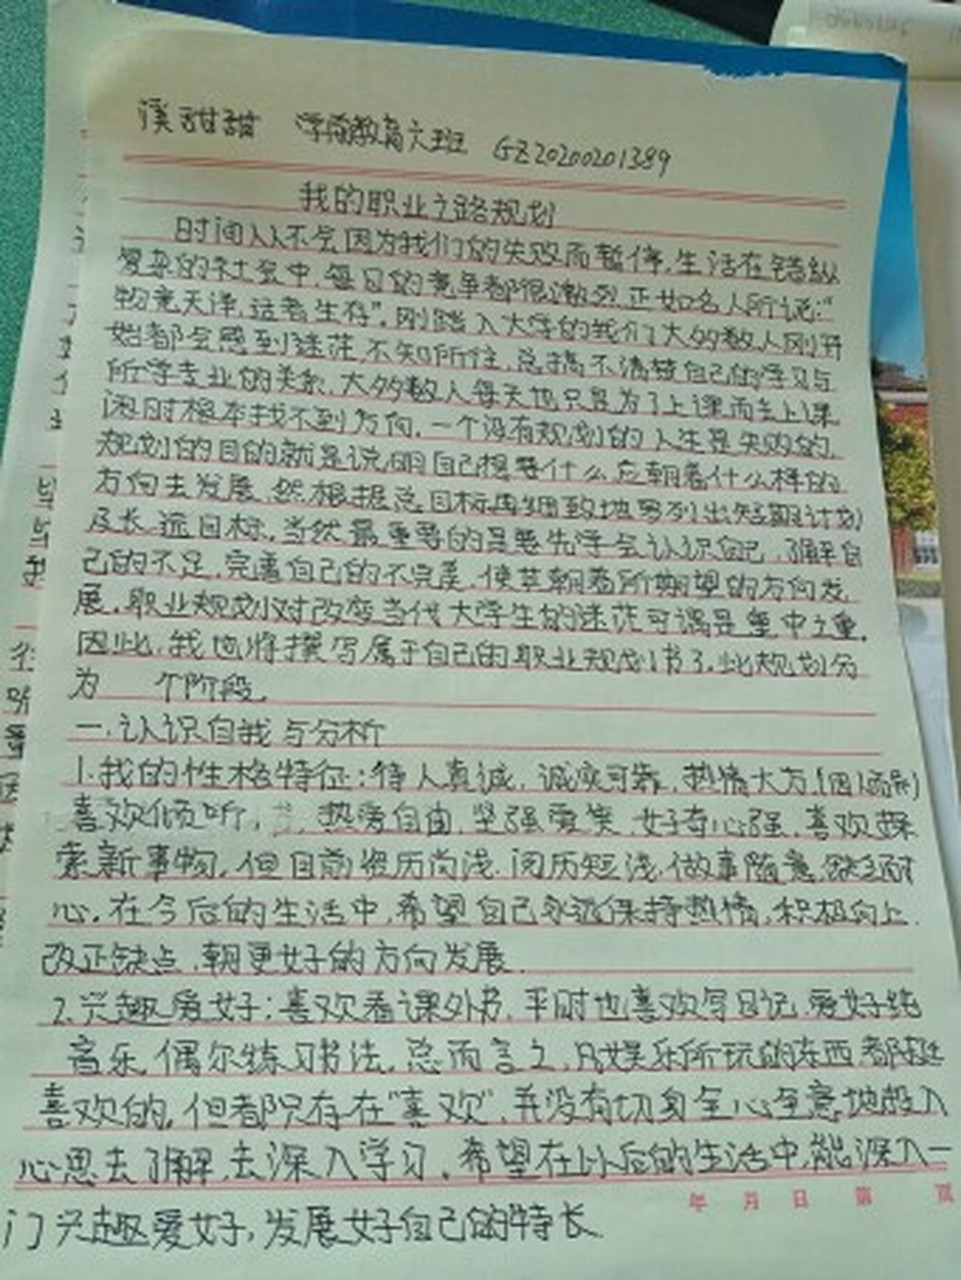 溪甜甜 学前教育六班 GZ20200201389
我的职业之路规划
时间从不会因为我们的失败而暂停,生活在错纵
复杂的社会中,每日的竞争都很激烈.正如名人所说:"
物竞天泽,适者生存".刚踏入大学的我们大多数人刚开
始都会感到迷茫不知所往,总搞不清楚自己的学习与
所学专业的关系,大多数人每天也只是为了上课而去上课
闲时根本找不到方向.一个没有规划的人生是失败的,
规划的目的就是说明自己想要什么应朝着什么样的
方向去发展,然根据总目标再细致地罗列出短期计划
及长远目标.当然最重要的是要先学会认识自己,了解自
己的不足,完善自己的不完美,使其朝着所期望的方向发
展.职业规划对改变当代大学生的迷茫可谓是重中之重.
因此,我也将撰写属于自己的职业规划书了,此规划分
为 个阶段.
一.认识自我与分析
1.我的性格特征:待人真诚,诚实可靠,热情大方(因人而异)
喜欢倾听,热爱自由,坚强爱笑,好奇心强,喜欢探
索新事物,但目前资历尚浅,阅历短浅,做事随意,缺乏耐
心.在今后的生活中,希望自己永远保持热情,积极向上.
改正缺点,朝更好的方向发展.
2.兴趣爱好:喜欢看课外书,平时也喜欢写日记,爱好纯
音乐,偶尔练习书法.总而言之,凡娱乐所玩的东西都挺
喜欢的.但都只存在"喜欢",并没有切身全心全意地投入
心思去了解,去深入学习.希望在以后的生活中,能深入一
门兴趣爱好,发展好自己的特长
年 月 日 第 页